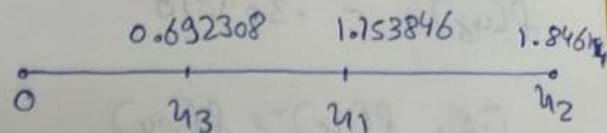 0.692308 1.153846 1.8461
0 x3 x1 x2